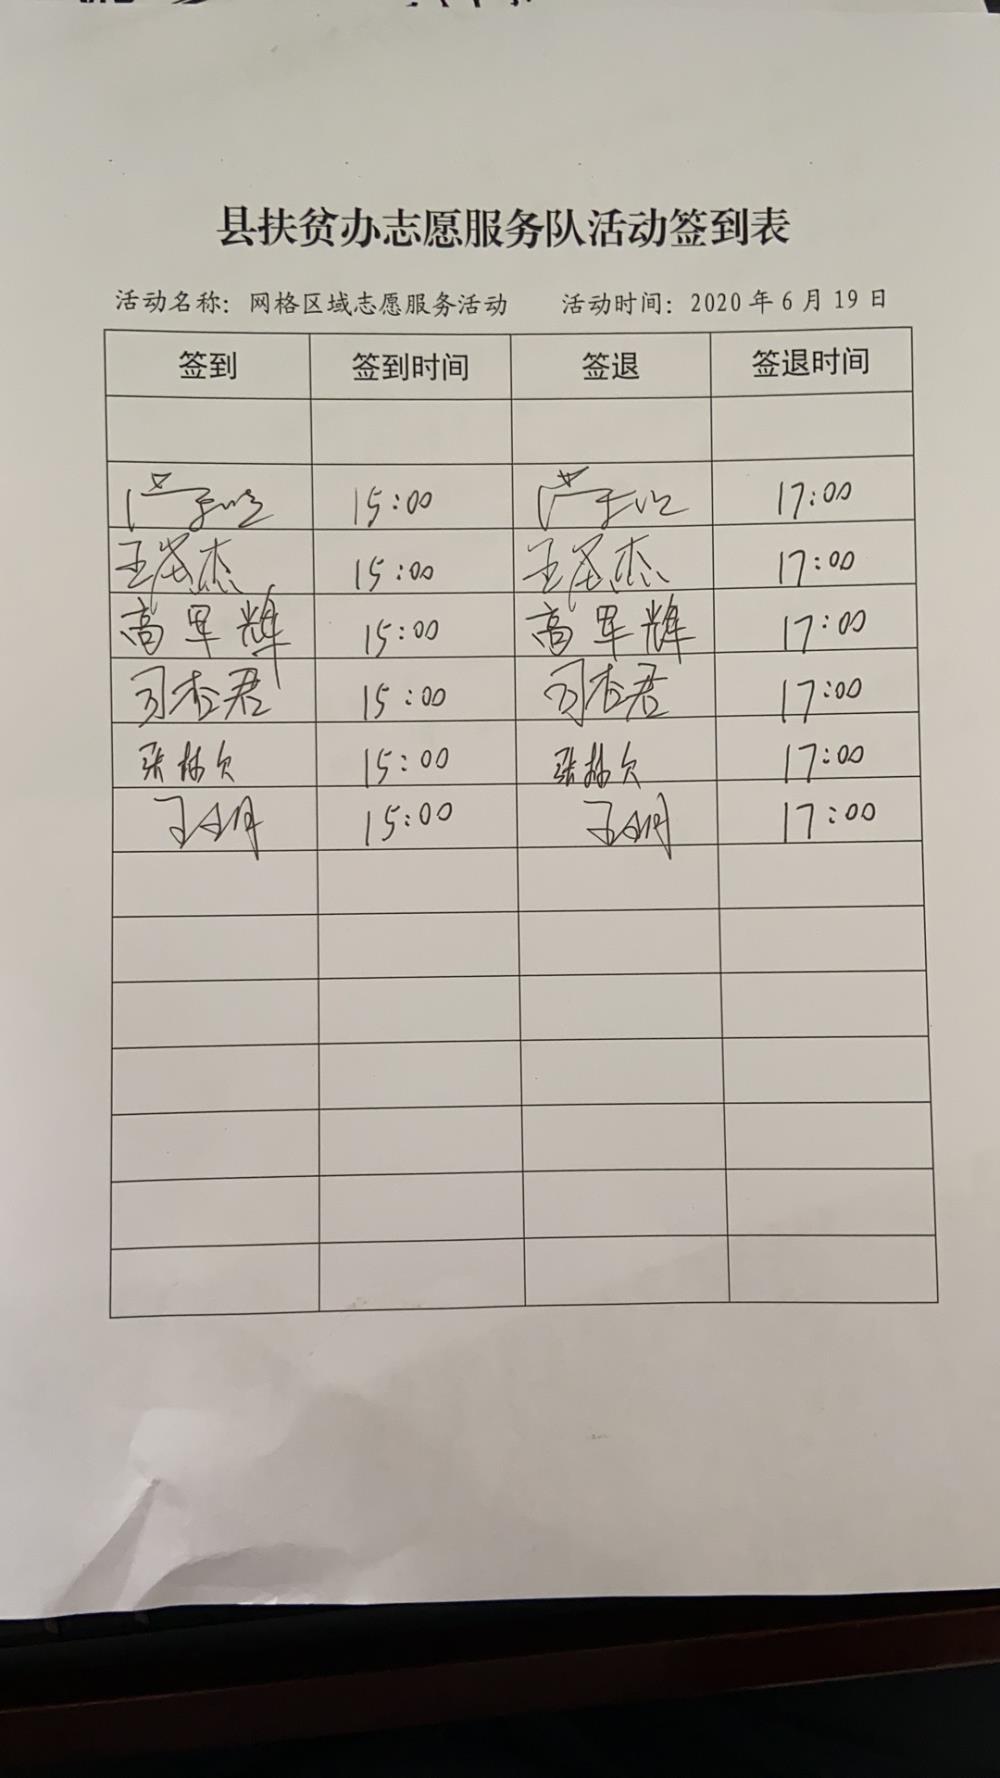 县扶贫办志愿服务队活动签到表
活动名称：网格区域志愿服务活动 活动时间：2020年6月19日
签到 签到时间 签退 签退时间
15:00 17:00
15:00 17:00
高军辉 15:00 高军辉 17:00
司杏君 15:00 司杏君 17:00
15:00 17:00
15:00 17:00